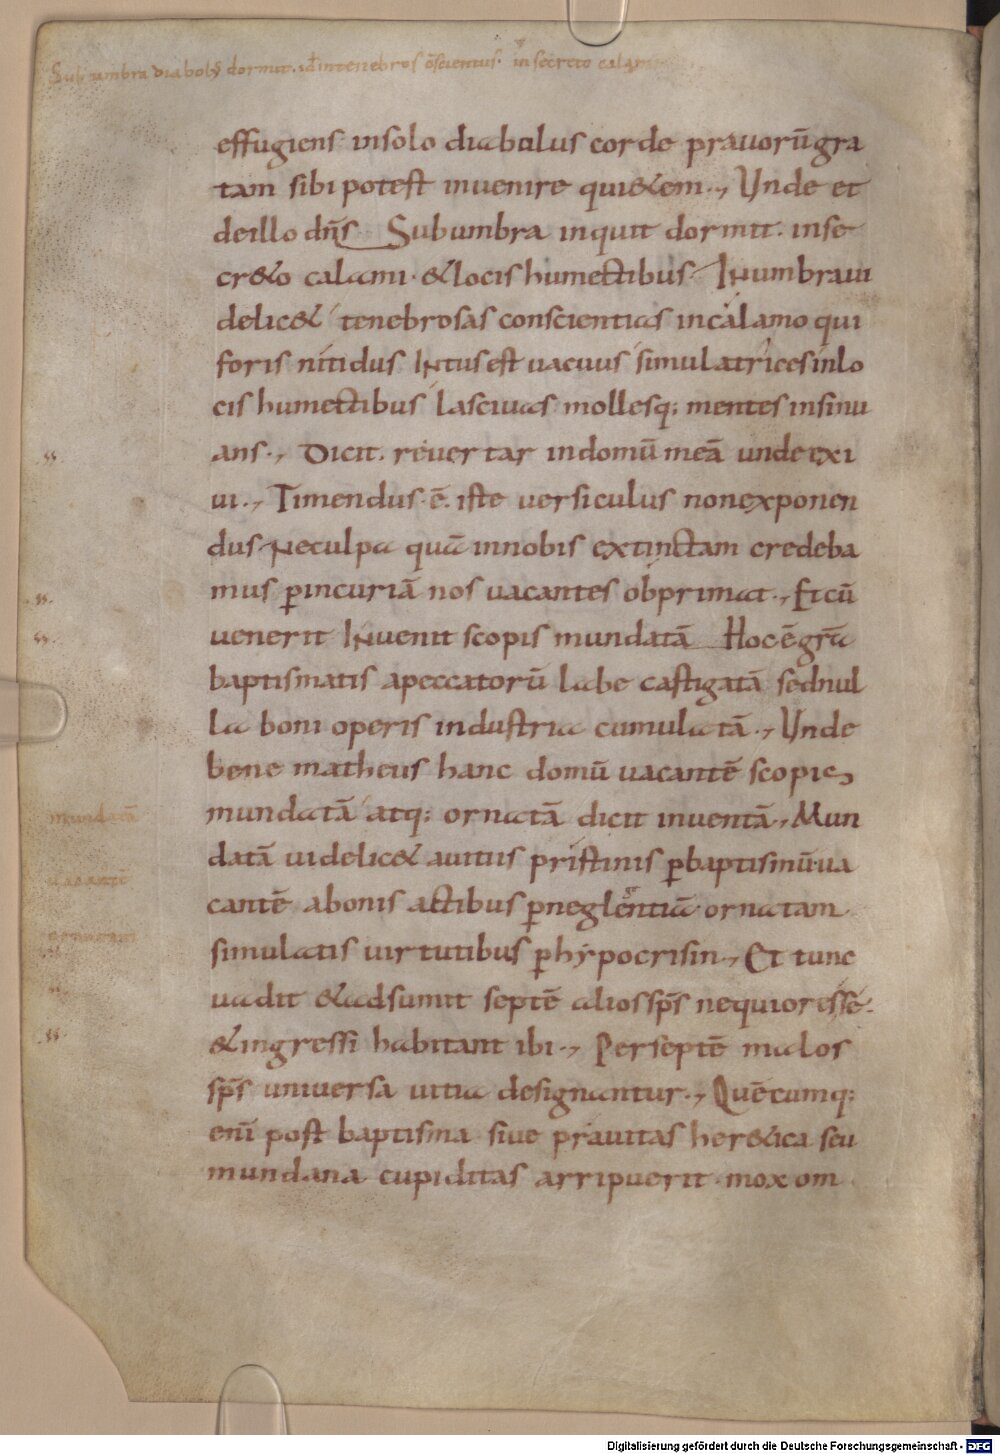 Sub umbra diabolus dormit. id intenebros c̄scientiis. in secreto calami
effugiens insolo diabulus corde prauorū gra
tam sibi potest inuenire qui&em., Unde et
deillo dn̄s Sub umbra inquit dormit. inse
cr&o calami. &locis humectibus. INumbra ui
delic& tenebrosas conscientias incalamo qui
foris nitidus INtus est uacuus simulatrices inlo
cis humectibus lasciuas mollesq; mentes insinu
ans., Dicit. reuertar indomū meā unde exi
ui., Timendus. ē. iste uersiculus non exponen
dus Neculpa quā innobis extinctam credeba
mus p̄ incuriā nos uacantes obprimat., Et cū
uenerit INuenit scopis mundatā Hoc ē grā
baptismatis apeccatorū labe castigatā sed nul
la boni operis industria cumulatā., Unde
bene matheus hanc domū uacantē scopis
mundatā atq; ornatā dicit inuentā, Mun
datā uidelic& auitiis pristinis p̄ baptismū. ua
cantē abonis actibus p̄ neglentiā ornatam
simulatis uirtutibus p̄ hypocrisin., Et tunc
uadit &adsumit septē alios sp̄s nequiores se.
&ingressi habitant ibi., Per septē malos
sp̄s uniuersa uitia designantur., Quēcumq;
enī post baptisma siue prauitas her&ica seu
mundana cupiditas arripuerit. mox om
mundatā
uacantē
ornatam
Digitalisierung gefördert durch die Deutsche Forschungsgemeinschaft - DFG